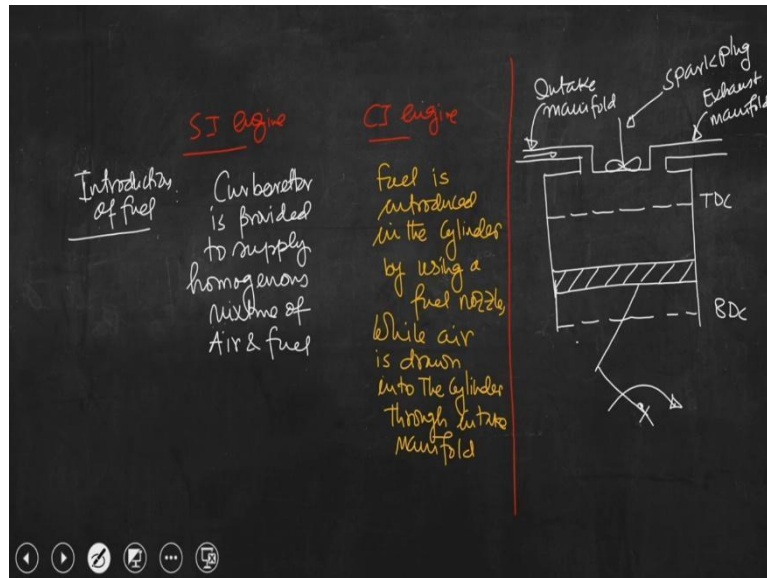 SI Engine
CI Engine
Introduction
of fuel
:
Carburettor
is provided
to supply
homogenous
mixture of
Air & fuel
Fuel is
introduced
in the cylinder
by using a
fuel nozzle,
While air
is drawn
into The cylinder
through intake
manifold
Intake
manifold
Spark plug
Exhaust
manifold
TDC
BDC